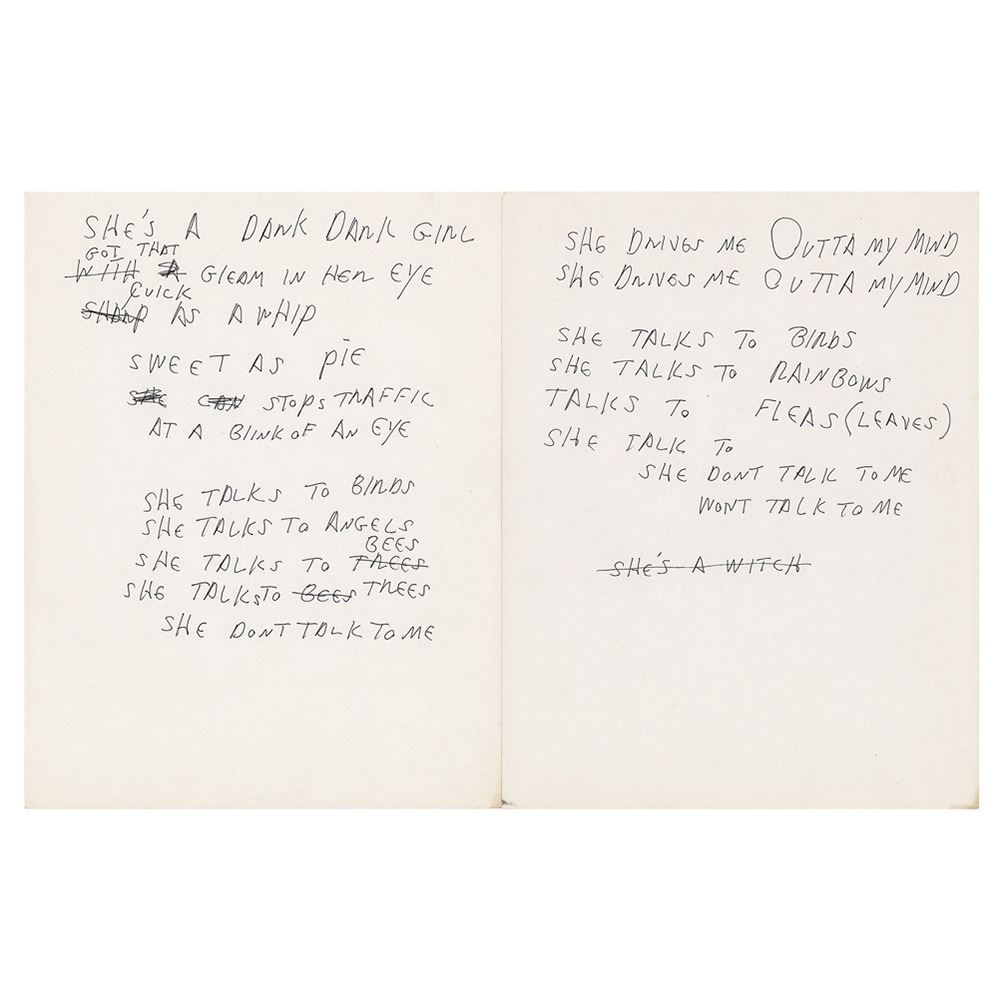 SHE'S A DARK DARK GIRL
GOT THAT
WITH A GLEAM IN HER EYE
QUICK
SHARP AS A WHIP
SWEET AS PIE
SHE CAN STOPS TRAFFIC
AT A BLINK OF AN EYE
SHE TALKS TO BIRDS
SHE TALKS TO ANGELS
BEES
SHE TALKS TO TREES
SHE TALKS TO BEES TREES
SHE DONT TALK TO ME
SHE DRIVES ME OUTTA MY MIND
SHE DRIVES ME OUTTA MY MIND
SHE TALKS TO BIRDS
SHE TALKS TO RAINBOWS
TALKS TO FLEAS (LEAVES)
SHE TALK TO
SHE DONT TALK TO ME
WONT TALK TO ME
SHE'S A WITCH